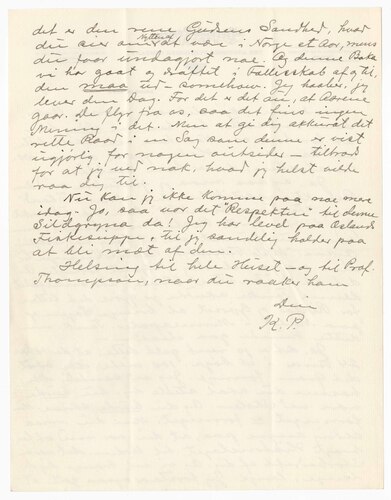 det er den rene Gudens Sandhed, hvad
du sier om at være i Norge et Aar, mens
Nyttaar
du faar undagjort noe. Og denne Boka
vi har gaat og drøftet i Fællesskab af og til,
den maa ud somehow. Jeg haaber, jeg
lever den Dag. For det er det au, at Aarene
gaar. De flyr fra os, saa det fins ingen
Mening i det. Men at gi dig akkurat det
rette Raad i en Sag som denne er vist
ugjørlig for nogen outsider — tiltrods
for at jeg ved nok, hvad jeg helst vilde
raa dig til.
Nu kan jeg ikke komme paa noe mer
idag. Jo, saa var det "Respekten" til denne
Sildgryna da! Jeg har levet paa Oslends
Fiskesuppe, til jeg sandelig holder paa
at bli mæt af den.
Helsing til hele Huset — og til Prof.
Thompson, naar du raaker ham
Din
K. P.